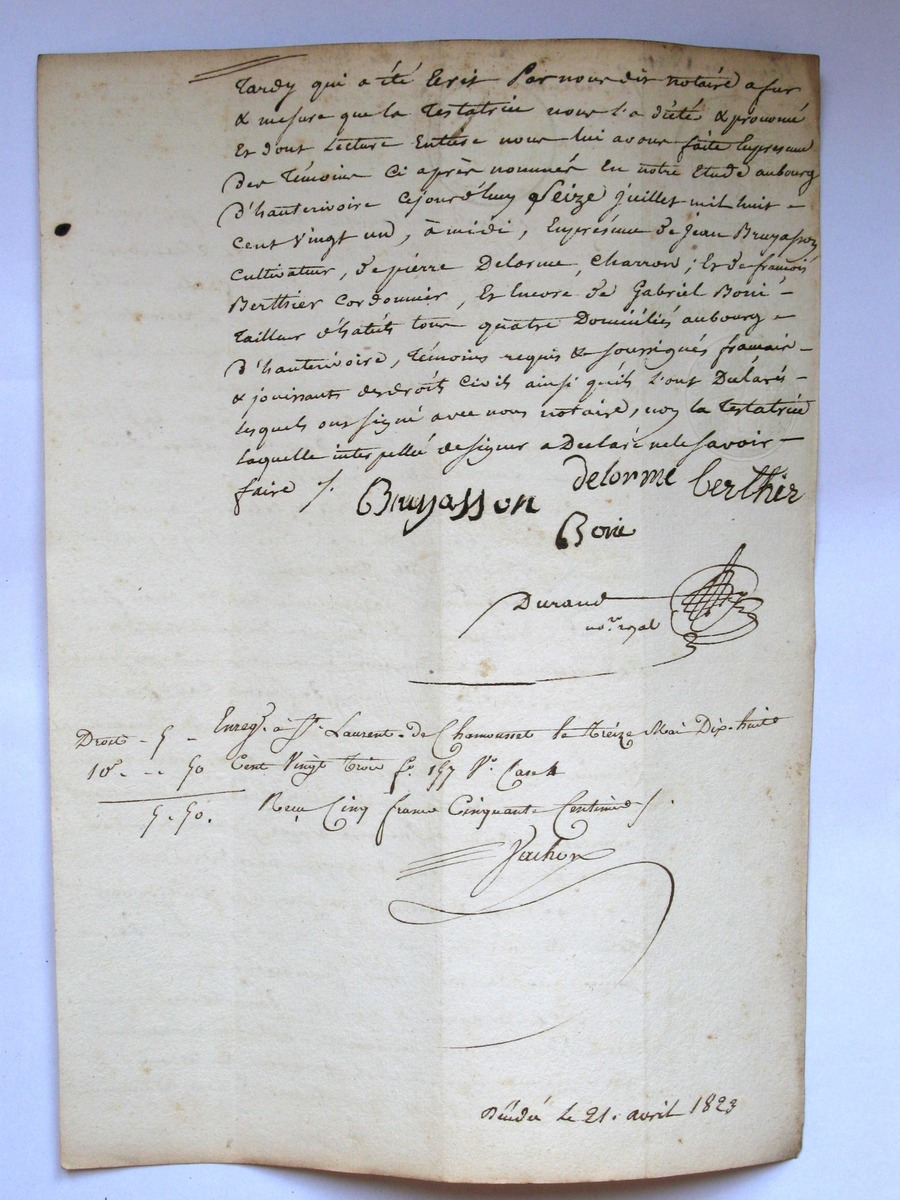 Tardy qui a été Ecrit Par nous dit notaire a fur
& mesure que la Testatrice nous l'a dicté & prononcé
Et dont Lecture Entière nous lui avons faite Enprésence
Des Témoins Ci après nommés En notre Etude aubourg
D'hauterivoire Cejourd'huy Seize Juillet mil huit
Cent Vingt un, à midi, Enprésence de Jean Bruyasson
Cultivateur, de pierre Delorme, Charron; Et de françois
Berthier Cordonnier, Et Encore de Gabriel Boni
Tailleur d'habits tous quatre Domiciliés aubourg
D'hauterivoire, Témoins requis & soussignés francais
& jouissants desdroits Civils ainsi qu'ils L'ont Déclarés
lesquels ont signé avec nous notaire, non la Testatrice
laquelle interpellée designer a Déclaré nele Savoir
faire /.
Bruyasson delorme berthier
Boni
Durand
no.re royal
Droit - 5 - Enreg.é à S.t Laurent-de Chamousset le treize Mai Dix-huit
10e. - .. 50 Cent Vingt trois f.o 157 V.o Case 4
5. 50. Reçu Cinq francs Cinquante Centimes /.
Vachon
Décédée Le 21. avril 1823